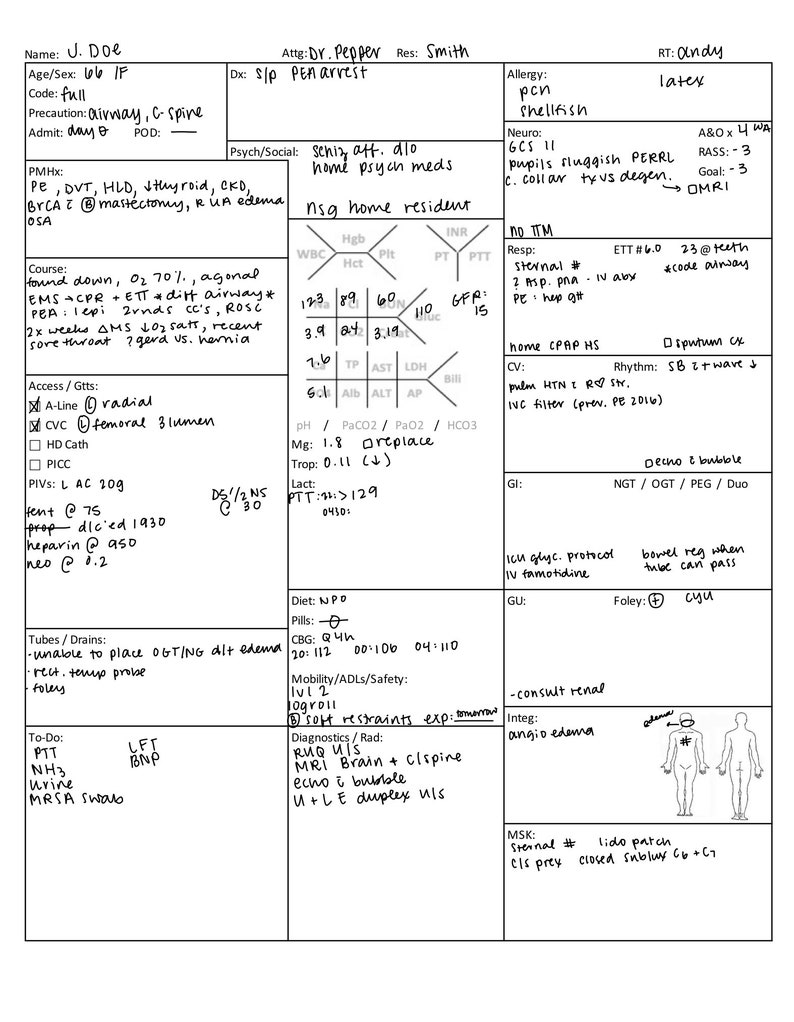 Name: J. DOE Attg: Dr. Pepper Res: Smith RT: andy
Age/Sex: 66 /F
Code: full
Precaution: airway, C-spine
Admit: day 0 POD: —
Dx: s/p PEA arrest
Allergy:
pcn latex
shellfish
Psych/Social: schiz aff. d/o
home psych meds
nsg home resident
Neuro: A&O x 4 WA
GCS 11 RASS: -3
pupils sluggish PERRL Goal: -3
c. collar tx vs degen. → □MRI
no TTM
PMHx:
PE, DVT, HLD, ↓thyroid, CKD,
BrCA c̄ Ⓑ mastectomy, R UA edema
OSA
Course:
found down, O2 70%, agonal
EMS → CPR + ETT *diff airway*
PEA: 1 epi 2rnds CC's, ROSC
2x weeks ΔMS ↓O2 sats, recent
sore throat ?gerd vs. hernia
WBC Hgb Hct Plt
INR PT PTT
123 89 60 110 GFR: 15
3.9 24 3.19
Na Cl BUN Gluc
7.6 TP AST LDH
5.1 Alb ALT AP Bili
pH / PaCO2 / PaO2 / HCO3
Mg: 1.8 □replace
Trop: 0.11 (↓)
Lact:
PTT: 22: >129
0430:
Resp: ETT # 6.0 23@teeth
sternal # *code airway
? Asp. pna - IV abx
PE: hep gtt
home CPAP HS □ sputum cx
CV: Rhythm: SB c̄ t wave ↓
pulm HTN c̄ R♡ str.
IVC filter (prev. PE 2016)
□echo c̄ bubble
Access / Gtts:
☒ A-Line Ⓛ radial
☒ CVC Ⓛ femoral 3 lumen
□ HD Cath
□ PICC
PIVs: L AC 20g
D5 1/2 NS
@ 30
fent @ 75
prop d/c'ed 1930
heparin @ 950
neo @ 0.2
GI: NGT / OGT / PEG / Duo
ICU glyc. protocol bowel reg when
IV famotidine tube can pass
Diet: NPO
Pills: 0
CBG: Q4h
20: 112 00:106 04:110
Mobility/ADLs/Safety:
lvl 2
logroll
Ⓑ soft restraints exp: tomorrow
GU: Foley: ⊕ CYU
-consult renal
Tubes / Drains:
-unable to place OGT/NG d/t edema
-rect. temp probe
-foley
Integ:
angio edema
edema
#
To-Do:
PTT LFT
NH3 BNP
urine
MRSA swab
Diagnostics / Rad:
RUQ U/S
MRI Brain + C/spine
echo c̄ bubble
U + L E duplex U/S
MSK:
sternal # lido patch
c/s prex closed sublux C6 + C7